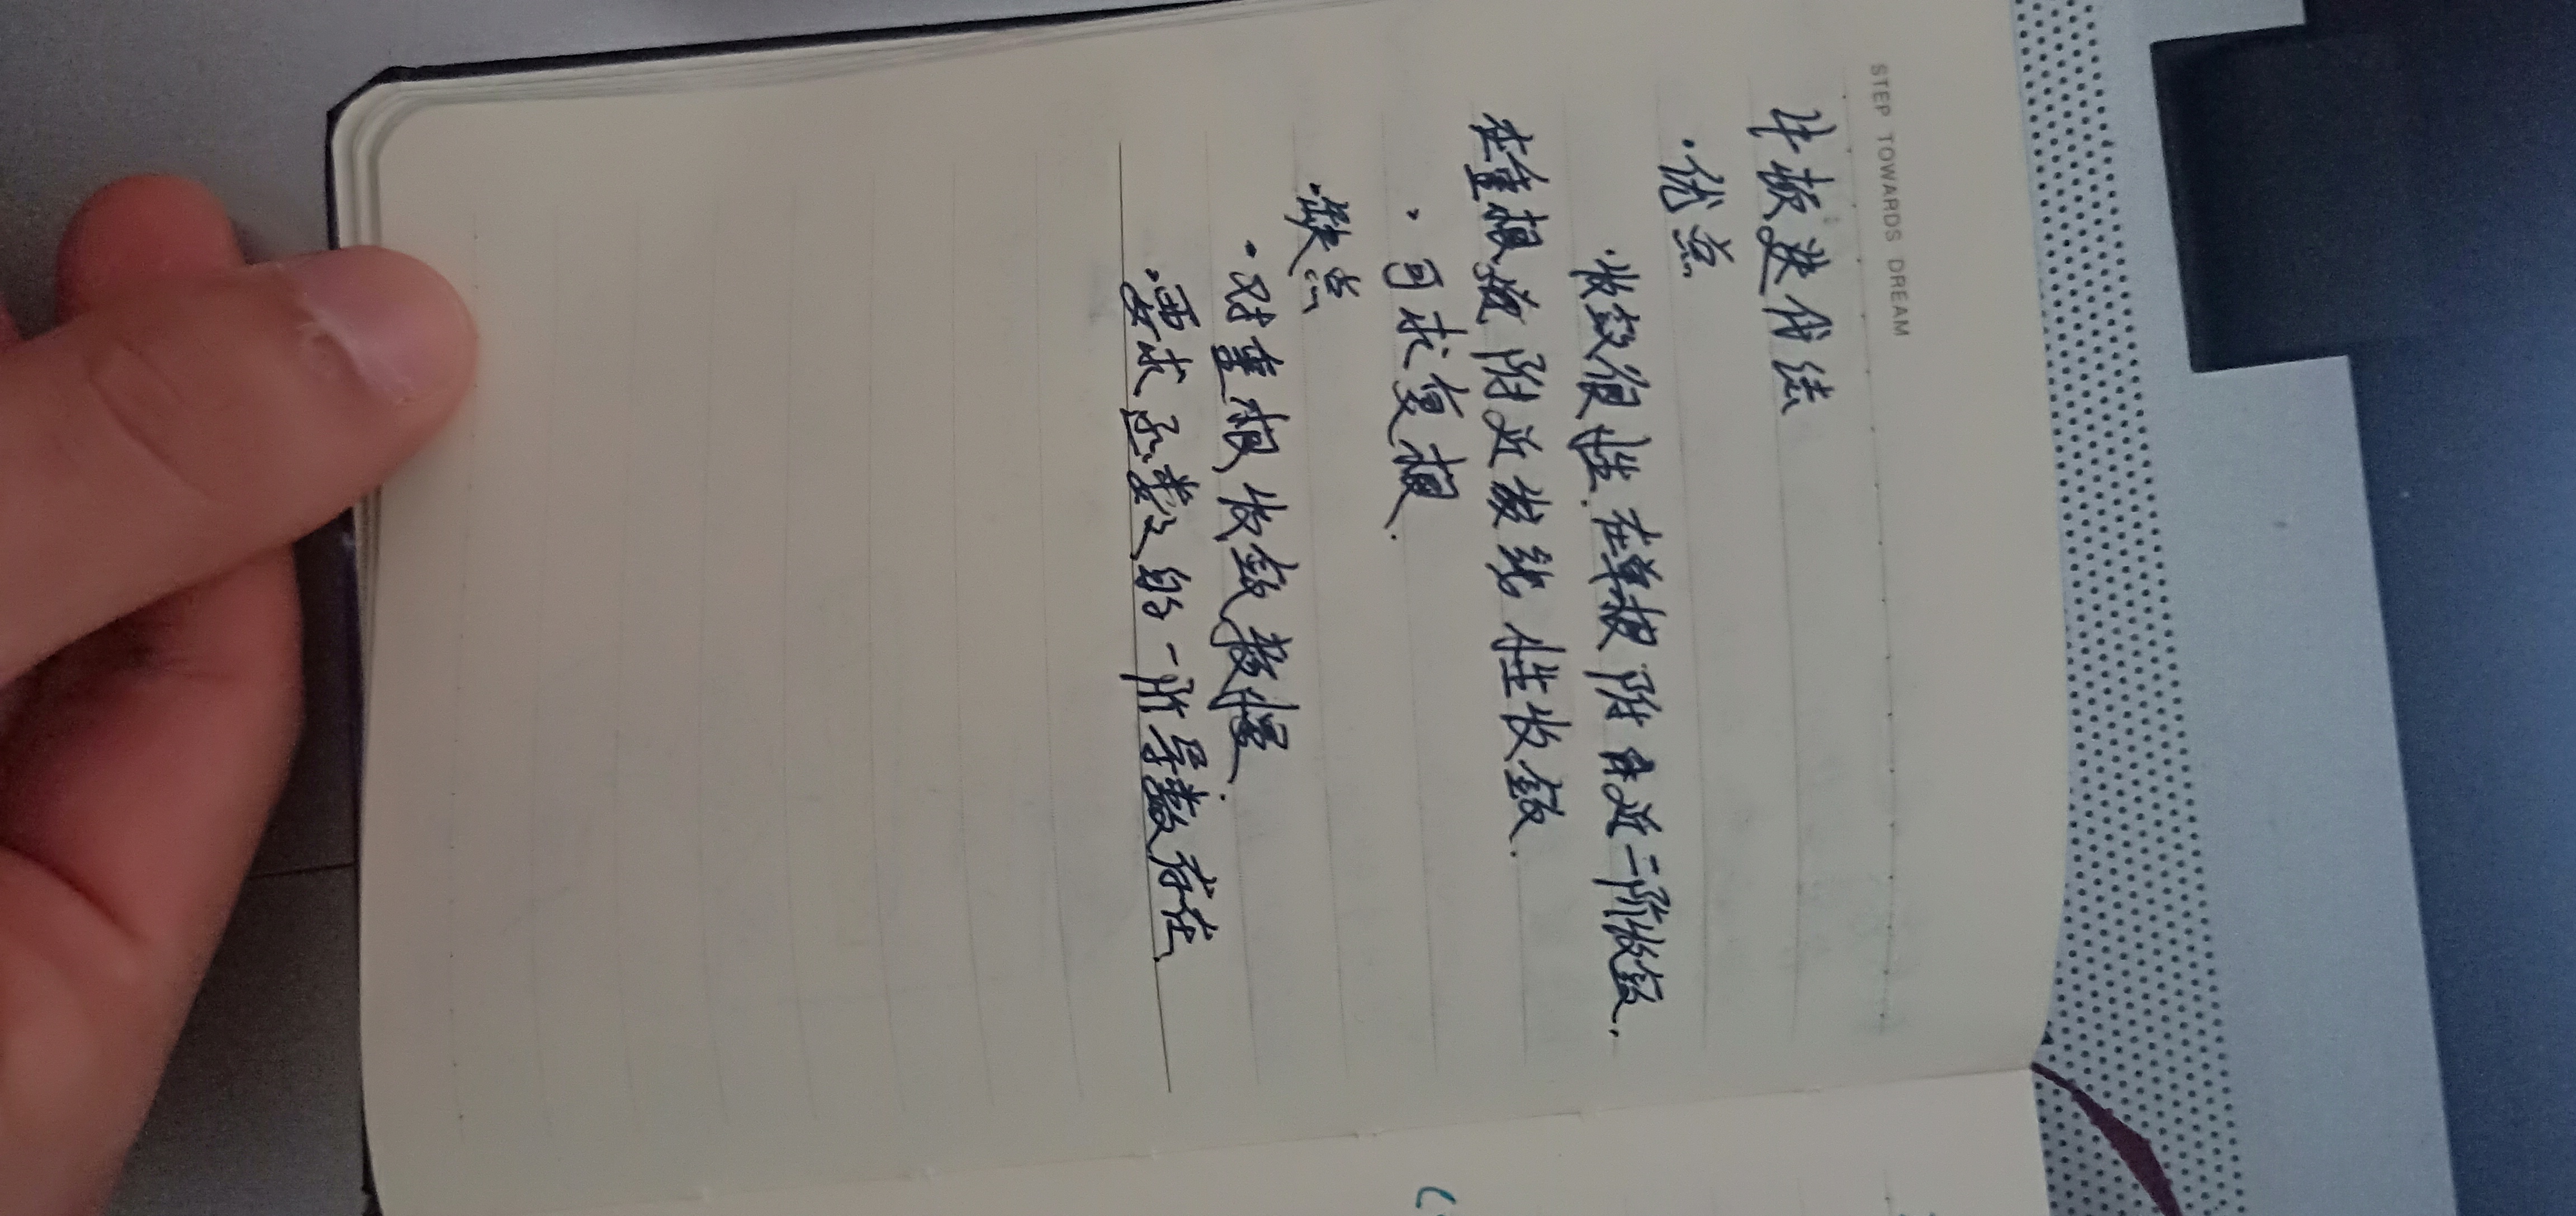 STEP TOWARDS DREAM
牛顿迭代法
·优点
·收敛很快. 在单根附近二阶收敛.
在重根附近线性收敛.
·可求复根.
·缺点
·对重根收敛较慢.
·要求函数的一阶导数存在